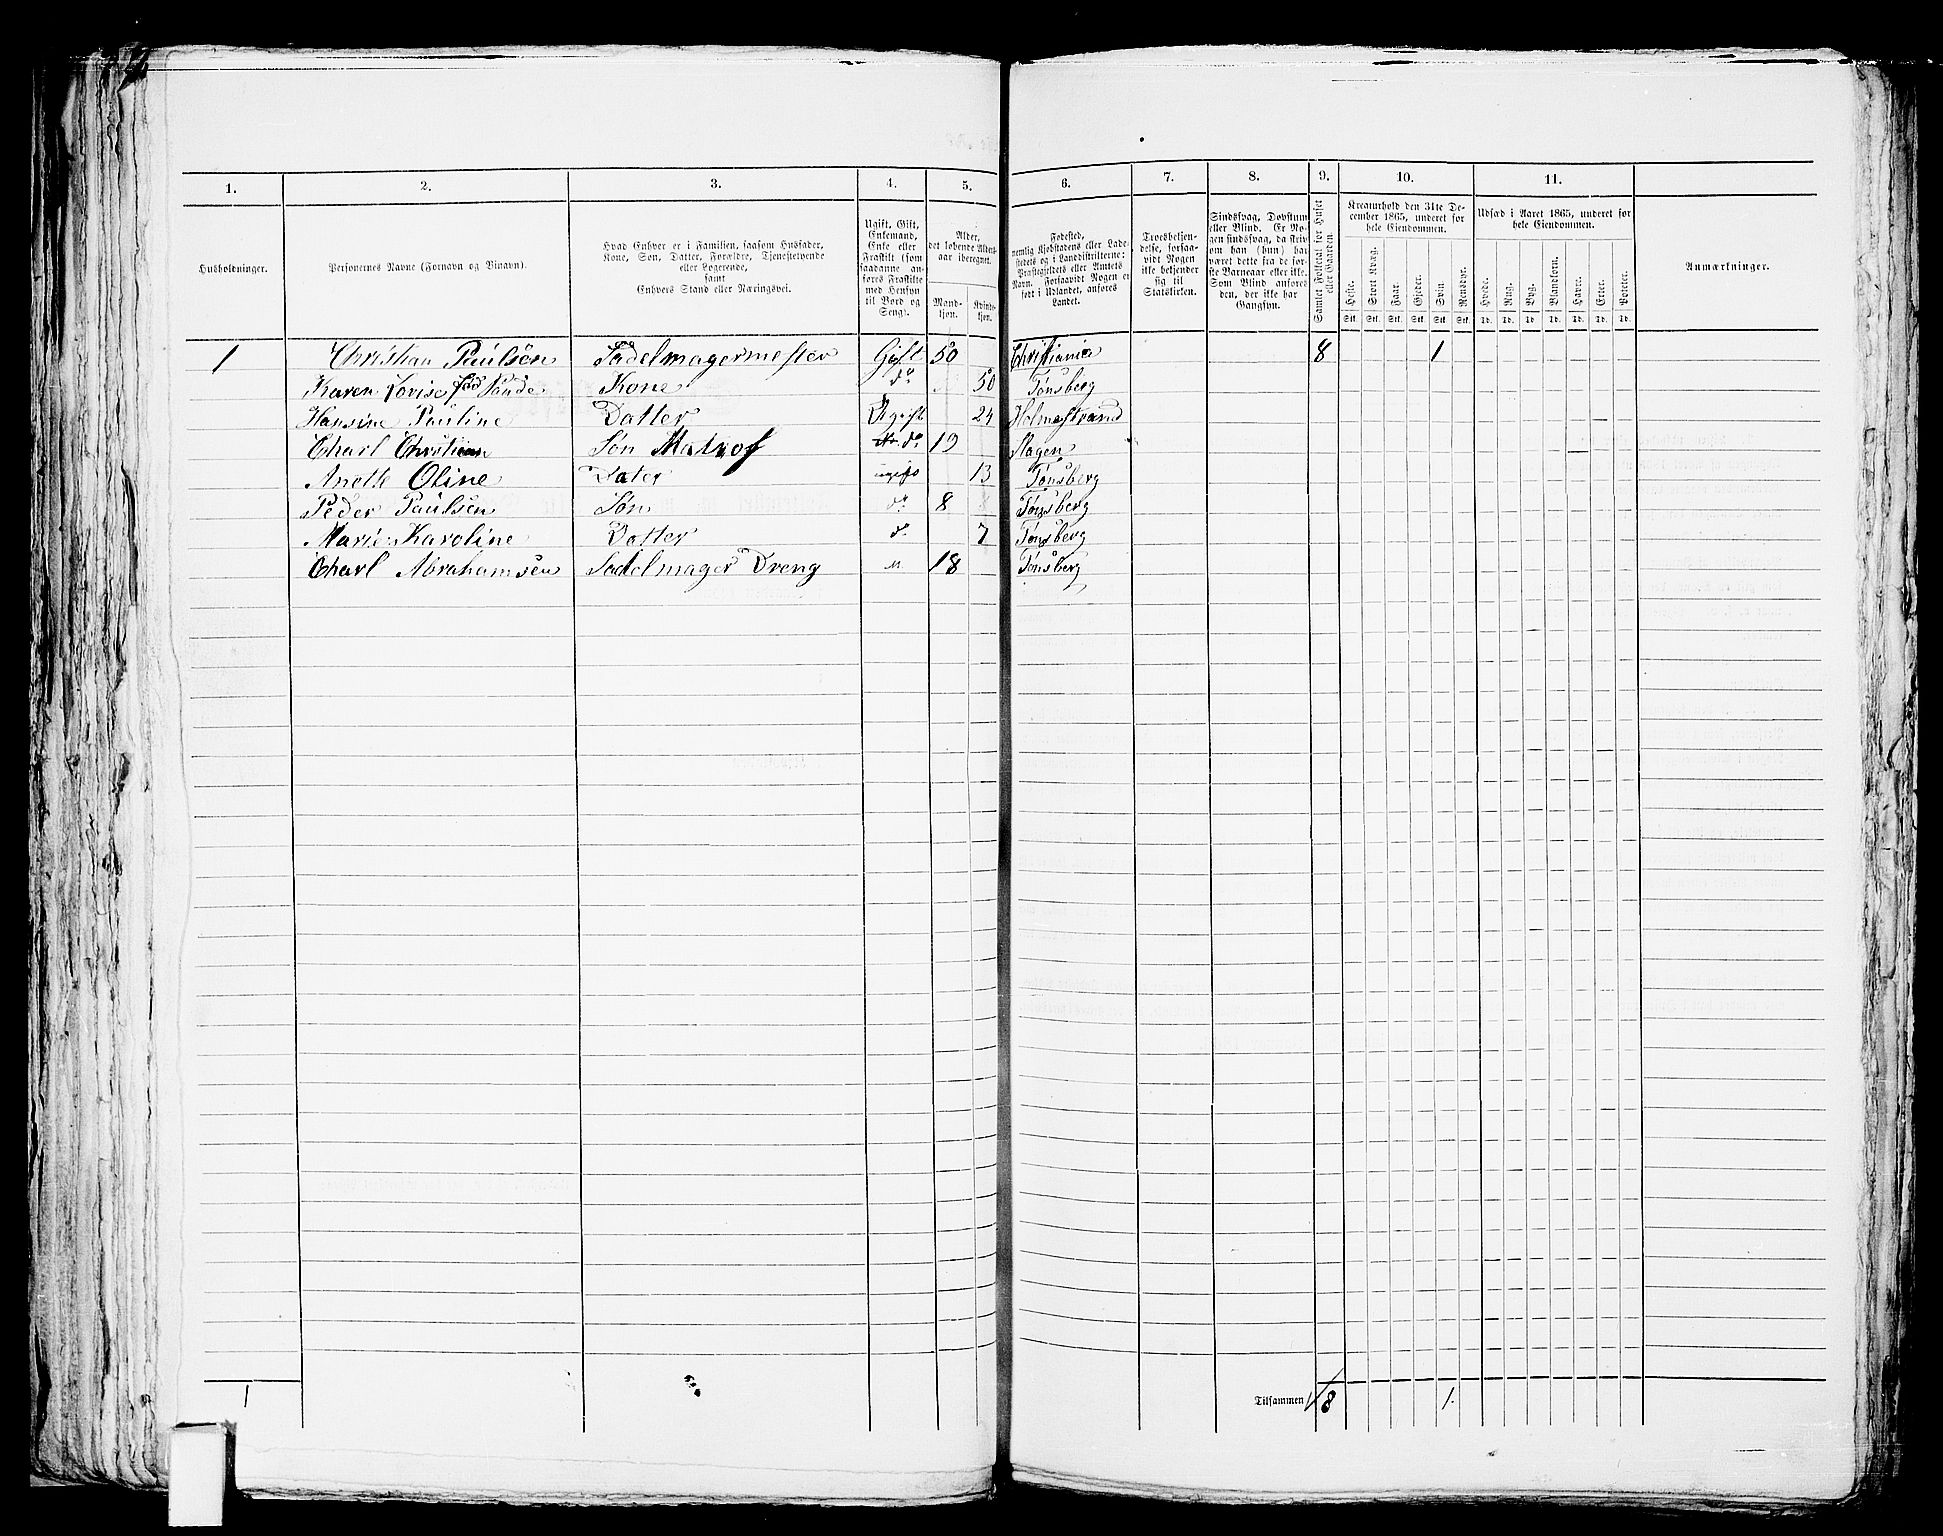 1. 2. 3. 4. 5. 6. 7. 8. 9. 10. 11.
Husholdninger.
Personernes Navne (Fornavn og Binavn).
Hvad Enhver er i Familien, saasom Husfader,
Kone, Søn, Datter, Forældre, Tjenestetyende
eller Logerende,
samt
Enhvers Stand eller Næringsvei.
Ugift, Gift,
Enkemand,
Enke eller
Fraskilt (som
saadanne an-
føres Fraskilte
med Hensyn
til Bord og
Seng).
Alder,
det løbende Alders-
aar iberegnet.
Mand-
kjøn.
Kvinde-
kjøn.
Fødested,
nemlig Kjøbstadens eller Lade-
stedets og i Landdistrikterne:
Præstegjeldets eller Amtets
Navn. Forsaavidt Nogen er
født i Udlandet, anføres
Landet.
Troesbekjen-
delse, forsaa-
vidt Nogen
ikke bekjender
sig til
Statskirken.
Sindssvag, Døvstum
eller Blind. Er No-
gen sindssvag, da skriv
om han (hun) har
været dette fra de før-
ste Barneaar eller ikke.
Som Blind anføres
den, der ikke har
Gangsyn.
Samlet Folketal for Huset
eller Gaarden.
Kreaturhold den 31te De-
cember 1865, underet for
hele Eiendommen.
Heste. Stort Kvæg. Faar. Gjeder. Svin. Rensdyr.
Stk. Stk. Stk. Stk. Stk. Stk.
Udsæd i Aaret 1865, underet for
hele Eiendommen.
Hvede. Rug. Byg. Blandkorn. Havre. Erter. Poteter.
Td. Td. Td. Td. Td. Td. Td.
Anmærkninger.
1 Christian Paulsen Sadelmagermester Gift 50 Christiania 8 1
Karen Lovise fød Sønde Kone do 50 Tønsberg
Hansine Pauline Datter Ugift 24 Holmestrand
Charl Christian Søn Matros do 19 Slagen
Anette Oline Dater ugift 13 Tønsberg
Peder Paulsen Søn do 8 Tønsberg
Marie Karoline Datter do 7 Tønsberg
Charl Abrahamsen Sadelmager Dreng " 18 Tønsberg
1 Tilsammen 8 1.